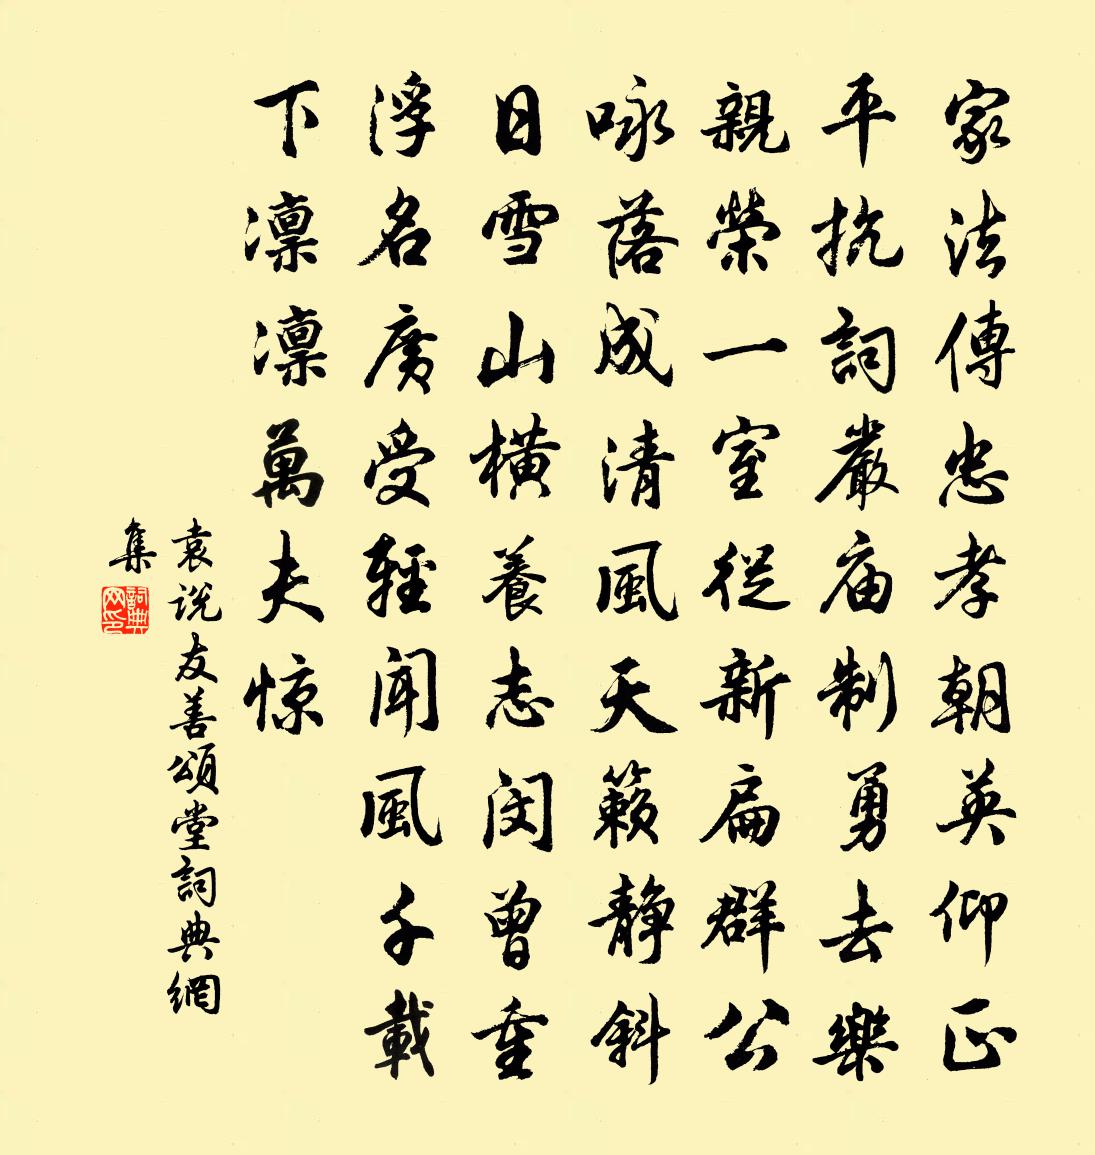 家法傳忠孝朝英仰正
平抗詞嚴庙制勇去樂
親榮一室從新扁群公
咏落成清風天籟靜斜
日雪山橫養志闵曾重
浮名廣受輕聞風千載
下凛凛萬夫惊
袁说友善頌堂詞典網
集
詞典
网印